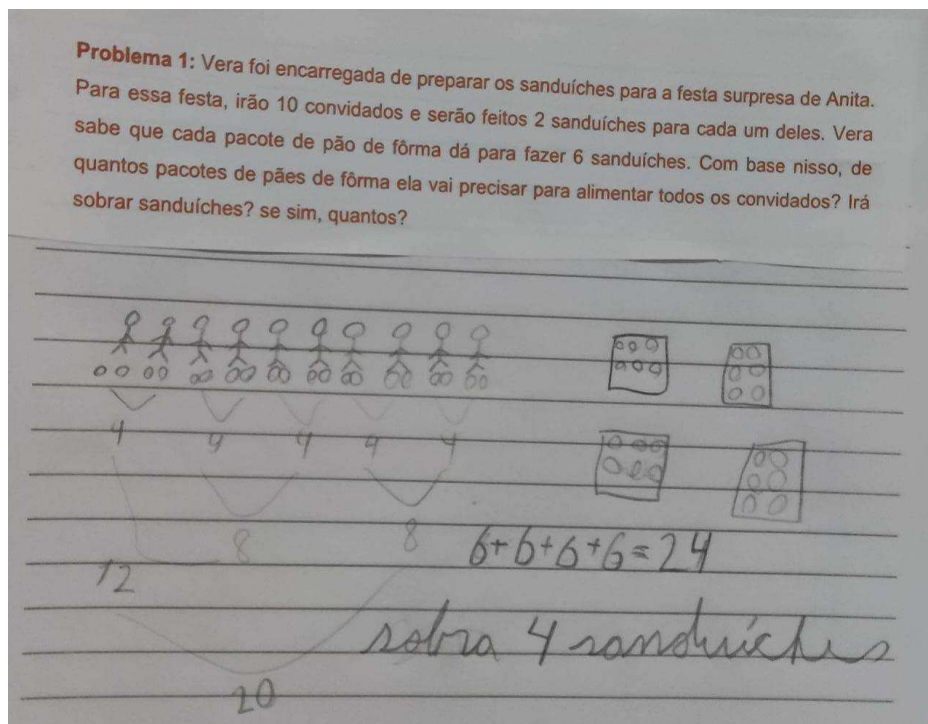 Problema 1: Vera foi encarregada de preparar os sanduíches para a festa surpresa de Anita.
Para essa festa, irão 10 convidados e serão feitos 2 sanduíches para cada um deles. Vera
sabe que cada pacote de pão de fôrma dá para fazer 6 sanduíches. Com base nisso, de
quantos pacotes de pães de fôrma ela vai precisar para alimentar todos os convidados? Irá
sobrar sanduíches? se sim, quantos?
4 4 4 4 4
8 8 6+6+6+6=24
12
sobra 4 sanduíches
20